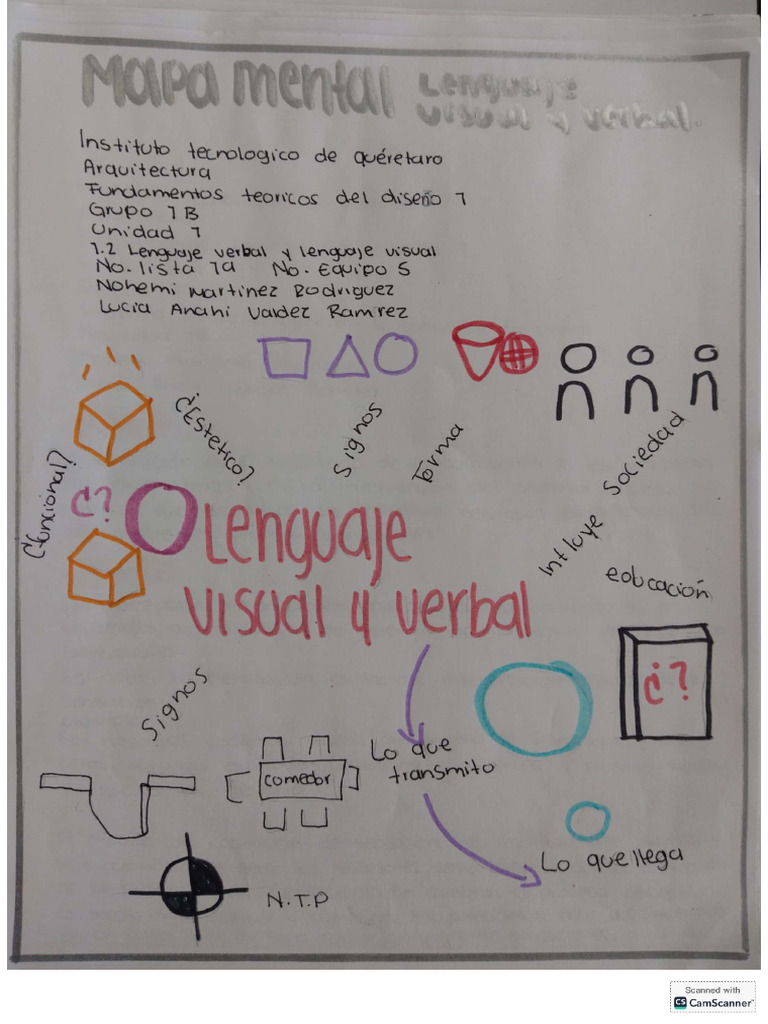 Mapa mental Lenguaje
visual y verbal.
Instituto tecnologico de quéretaro
Arquitectura
Fundamentos teoricos del diseño 1
Grupo 1B
Unidad 1
1.2 Lenguaje verbal y lenguaje visual
No. lista 19 No. Equipo 5
Nohemi Martinez Rodriguez
Lucia Anahi Valdez Ramirez
¿Estetico?
Signos
Forma
Sociedad
¿funcional?
¿?
Lenguaje
visual y verbal
Influye
educación
¿?
Signos
Lo que
transmito
comedor
Lo que llega
N.T.P
Scanned with
CS CamScanner